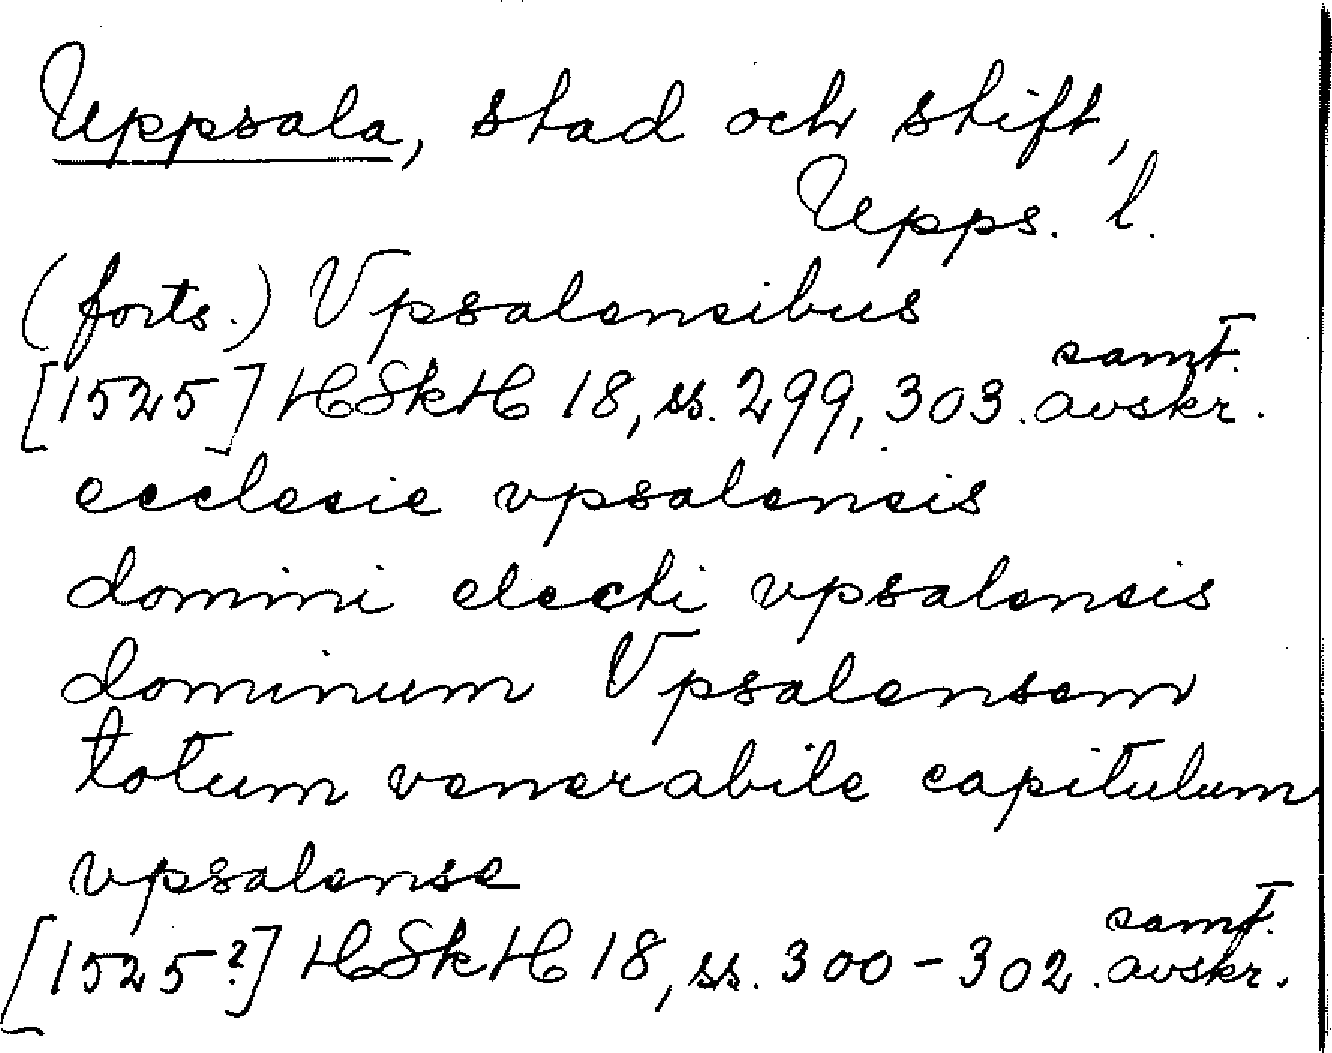 Uppsala, stad och stift,
Upps. l.
(forts.) Vpsalensibus
[1525] HSkH 18, ss. 299, 303. samt. avskr.
ecclesie vpsalensis
domini electi vpsalensis
dominum Vpsalensem
totum venerabile capitulum
vpsalense
[1525?] HSkH 18, ss. 300-302. samt. avskr.